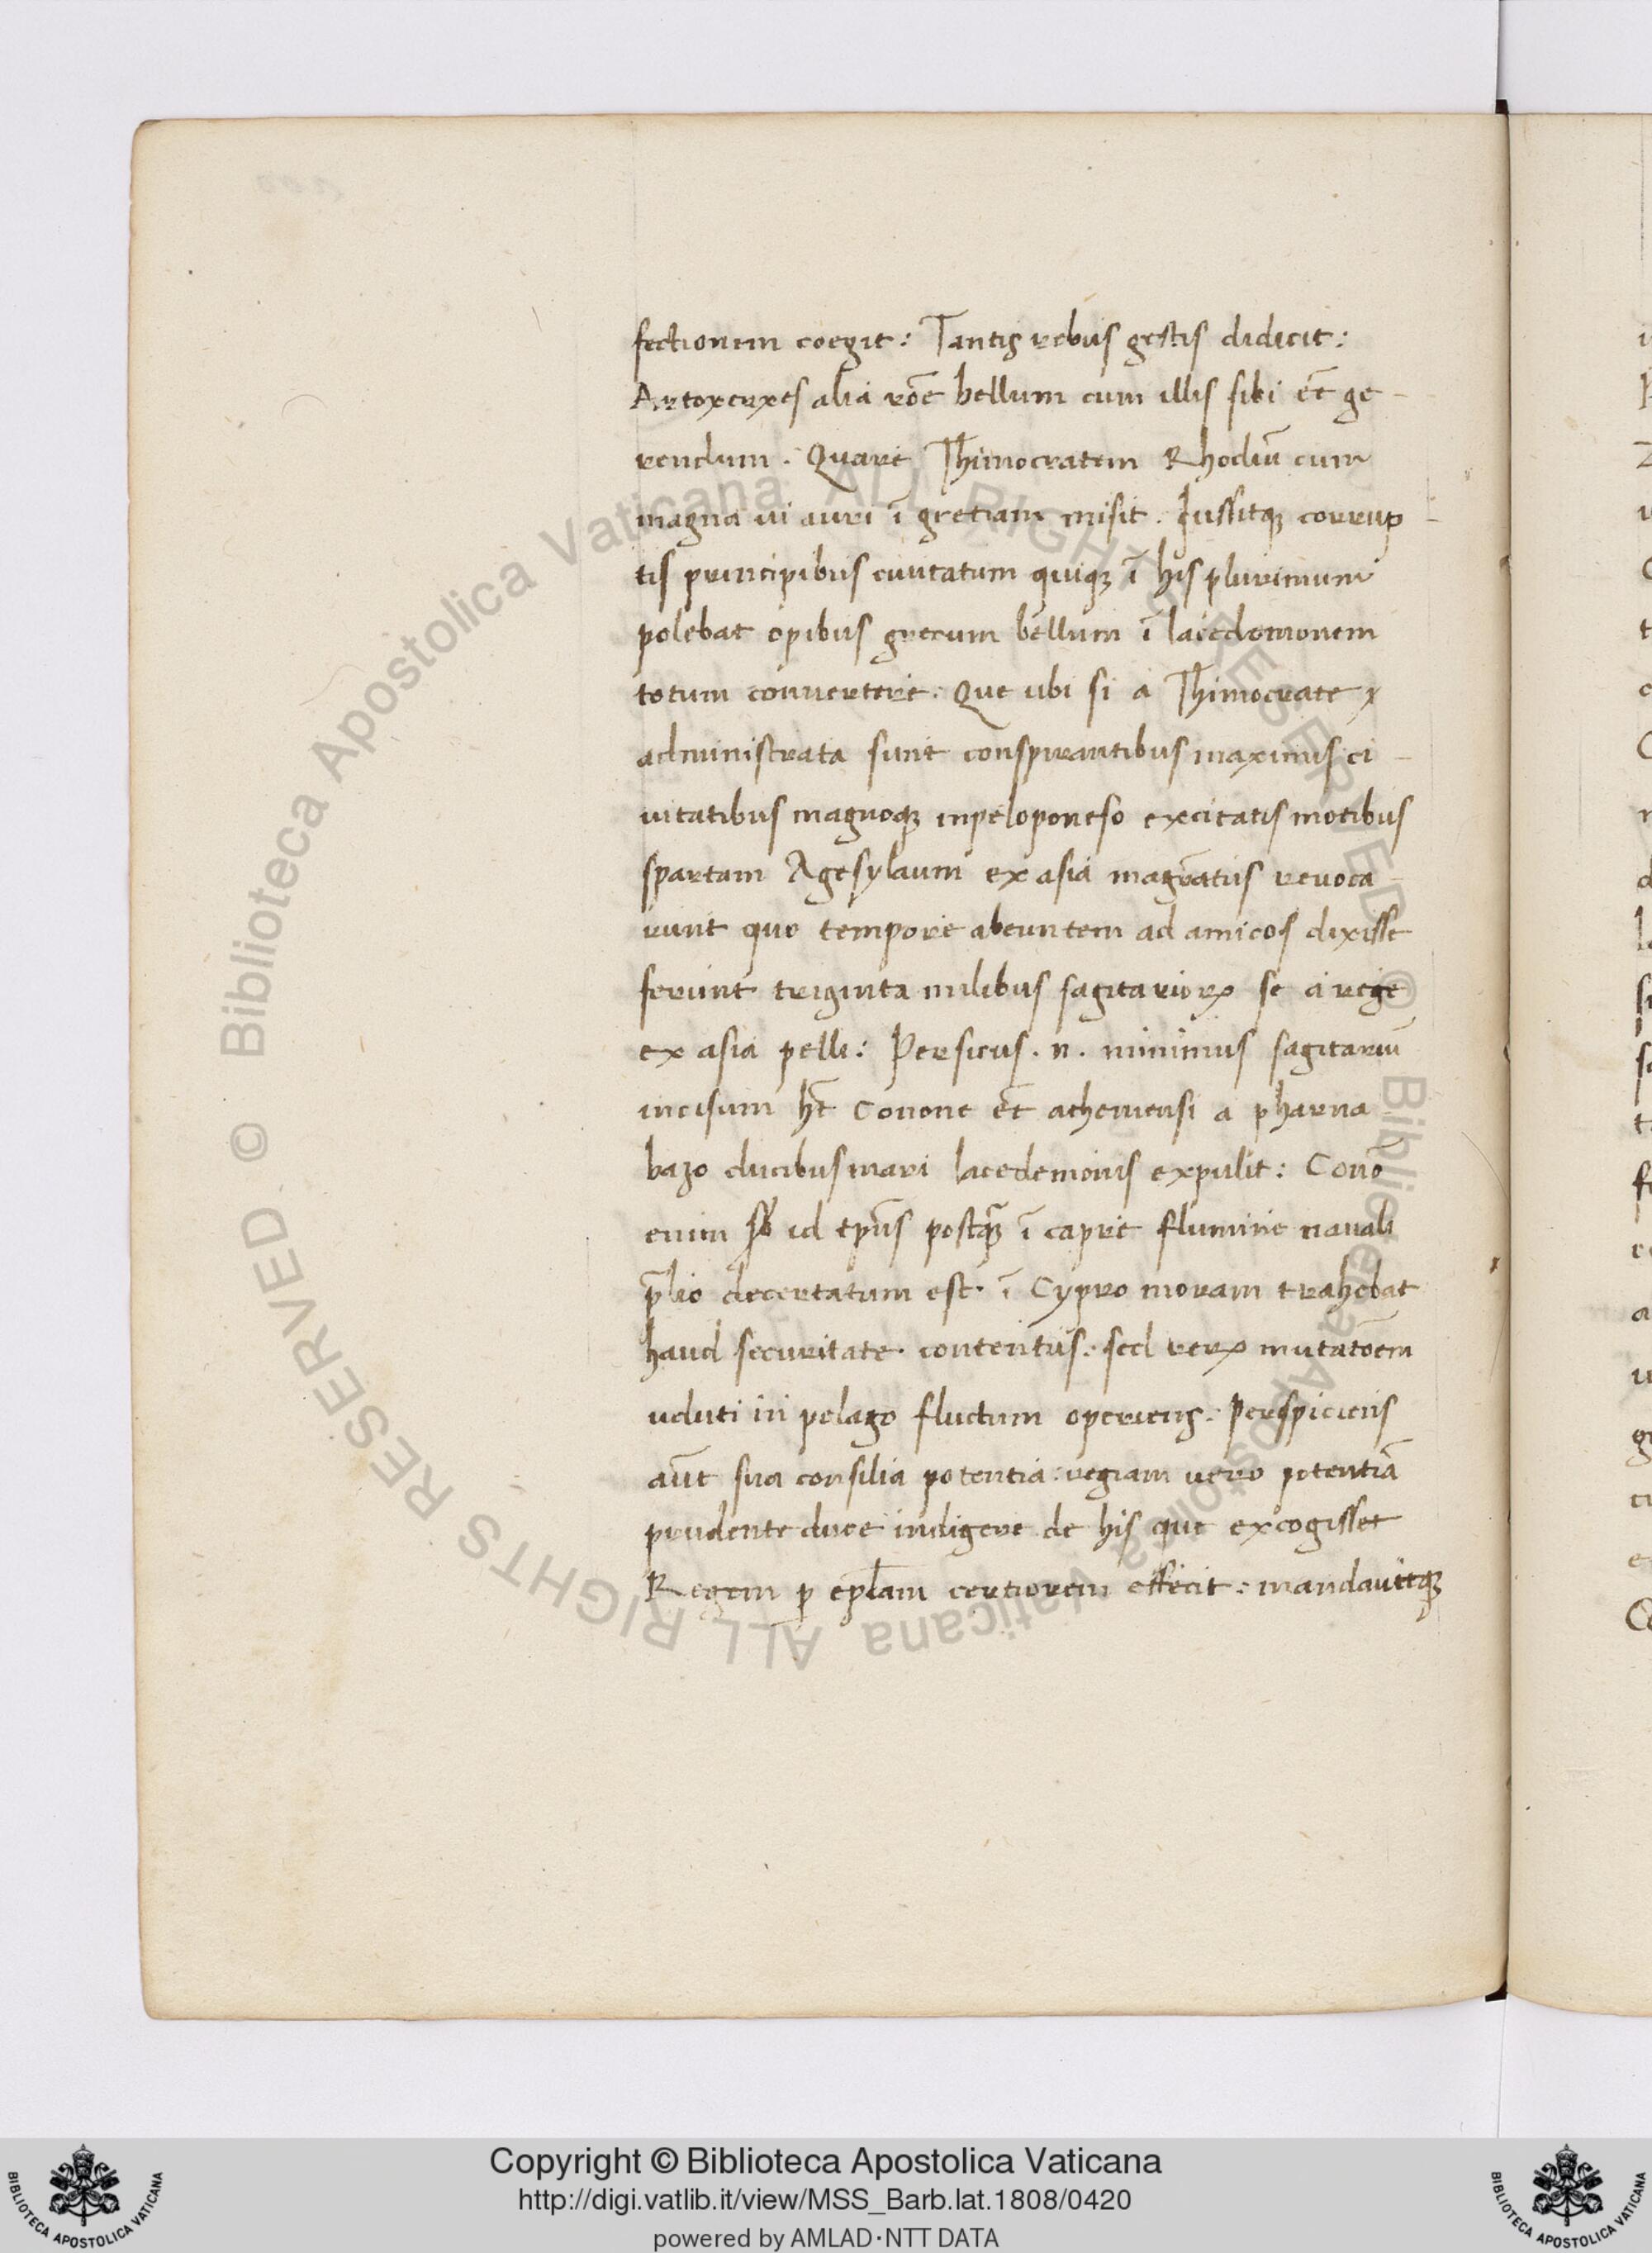 fectionem coegit: Tantis rebus gestis didicit:
Artoxerxes alia rōe bellum cum illis sibi ēe ge-
rendum. Quare Thimocratem Rhodiū cum
magna ui auri ī gretiam misit. Iussitqꝫ corrup-
tis principibus ciuitatum quiqꝫ ī his plurimum
polebat opibus grecum bellum ī lacedemonem
totum conuertere. Que ubi si a Thimocrate
administrata sunt conspirantibus maximis ci-
uitatibus magnoqꝫ inpeloponeso excitatis motibus
spartam Agesylaum ex asia magr̄atus reuoca
runt quo tempore abeuntem ad amicos dixisse
ferunt triginta milibus sagitarioꝝ se a rege
ex asia pelli: Persicus .n. nimmus sagitariū
incisum ht̄ Conone et̄ atheniensi a pharna
bazo ducibus mari lacedemonis expulit: Conō
enim id tp̄us postqꝫ̄ ī capre flumine nauali
p̄lio decertatum est. ī Cypro moram trahebat
haud securitate contentus. sed reꝝ mutatōem
uduti in pelago fluctum operiens. Perspiciens
aūt sua consilia potentia: regiam uero potentiā
prudente duce indigere de his que excogisset
Regem ꝑ epl̄am certiorem effecit: mandauitqꝫ
Copyright © Biblioteca Apostolica Vaticana
http://digi.vatlib.it/view/MSS_Barb.lat.1808/0420
powered by AMLAD·NTT DATA
BIBLIOTECA APOSTOLICA VATICANA
BIBLIOTECA APOSTOLICA VATICANA
© Biblioteca Apostolica Vaticana ALL RIGHTS RESERVED
© Biblioteca Apostolica Vaticana ALL RIGHTS RESERVED